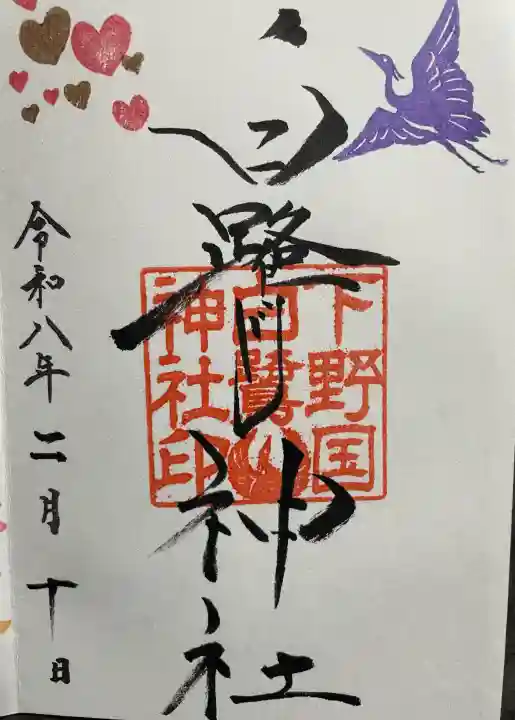 白鷺神社
下野国
白鷺
神社印
令和八年二月十日